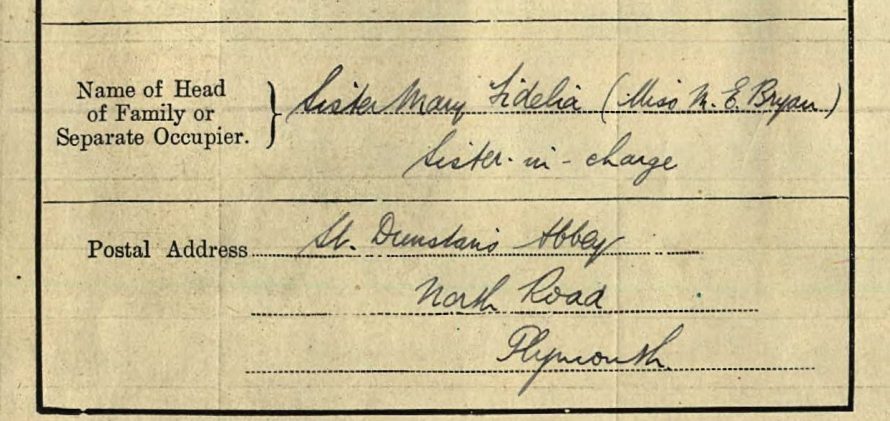 Name of Head
of Family or
Separate Occupier.
Sister Mary Fidelia (Miss M. E. Bryan)
Sister-in-charge
Postal Address St. Dunstan's Abbey
North Road
Plymouth.